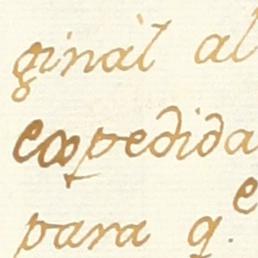 ginal al
expedida
para q.e